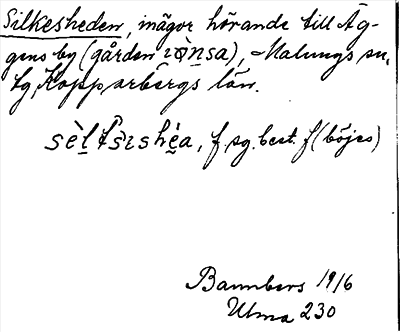 Silkesheden, mägor hörande till Äg-
gens by (gården), Malungs sn,
Kopparbergs län.
f. sg. best. f (böjes)
Bannbers 1916
Ulma 230